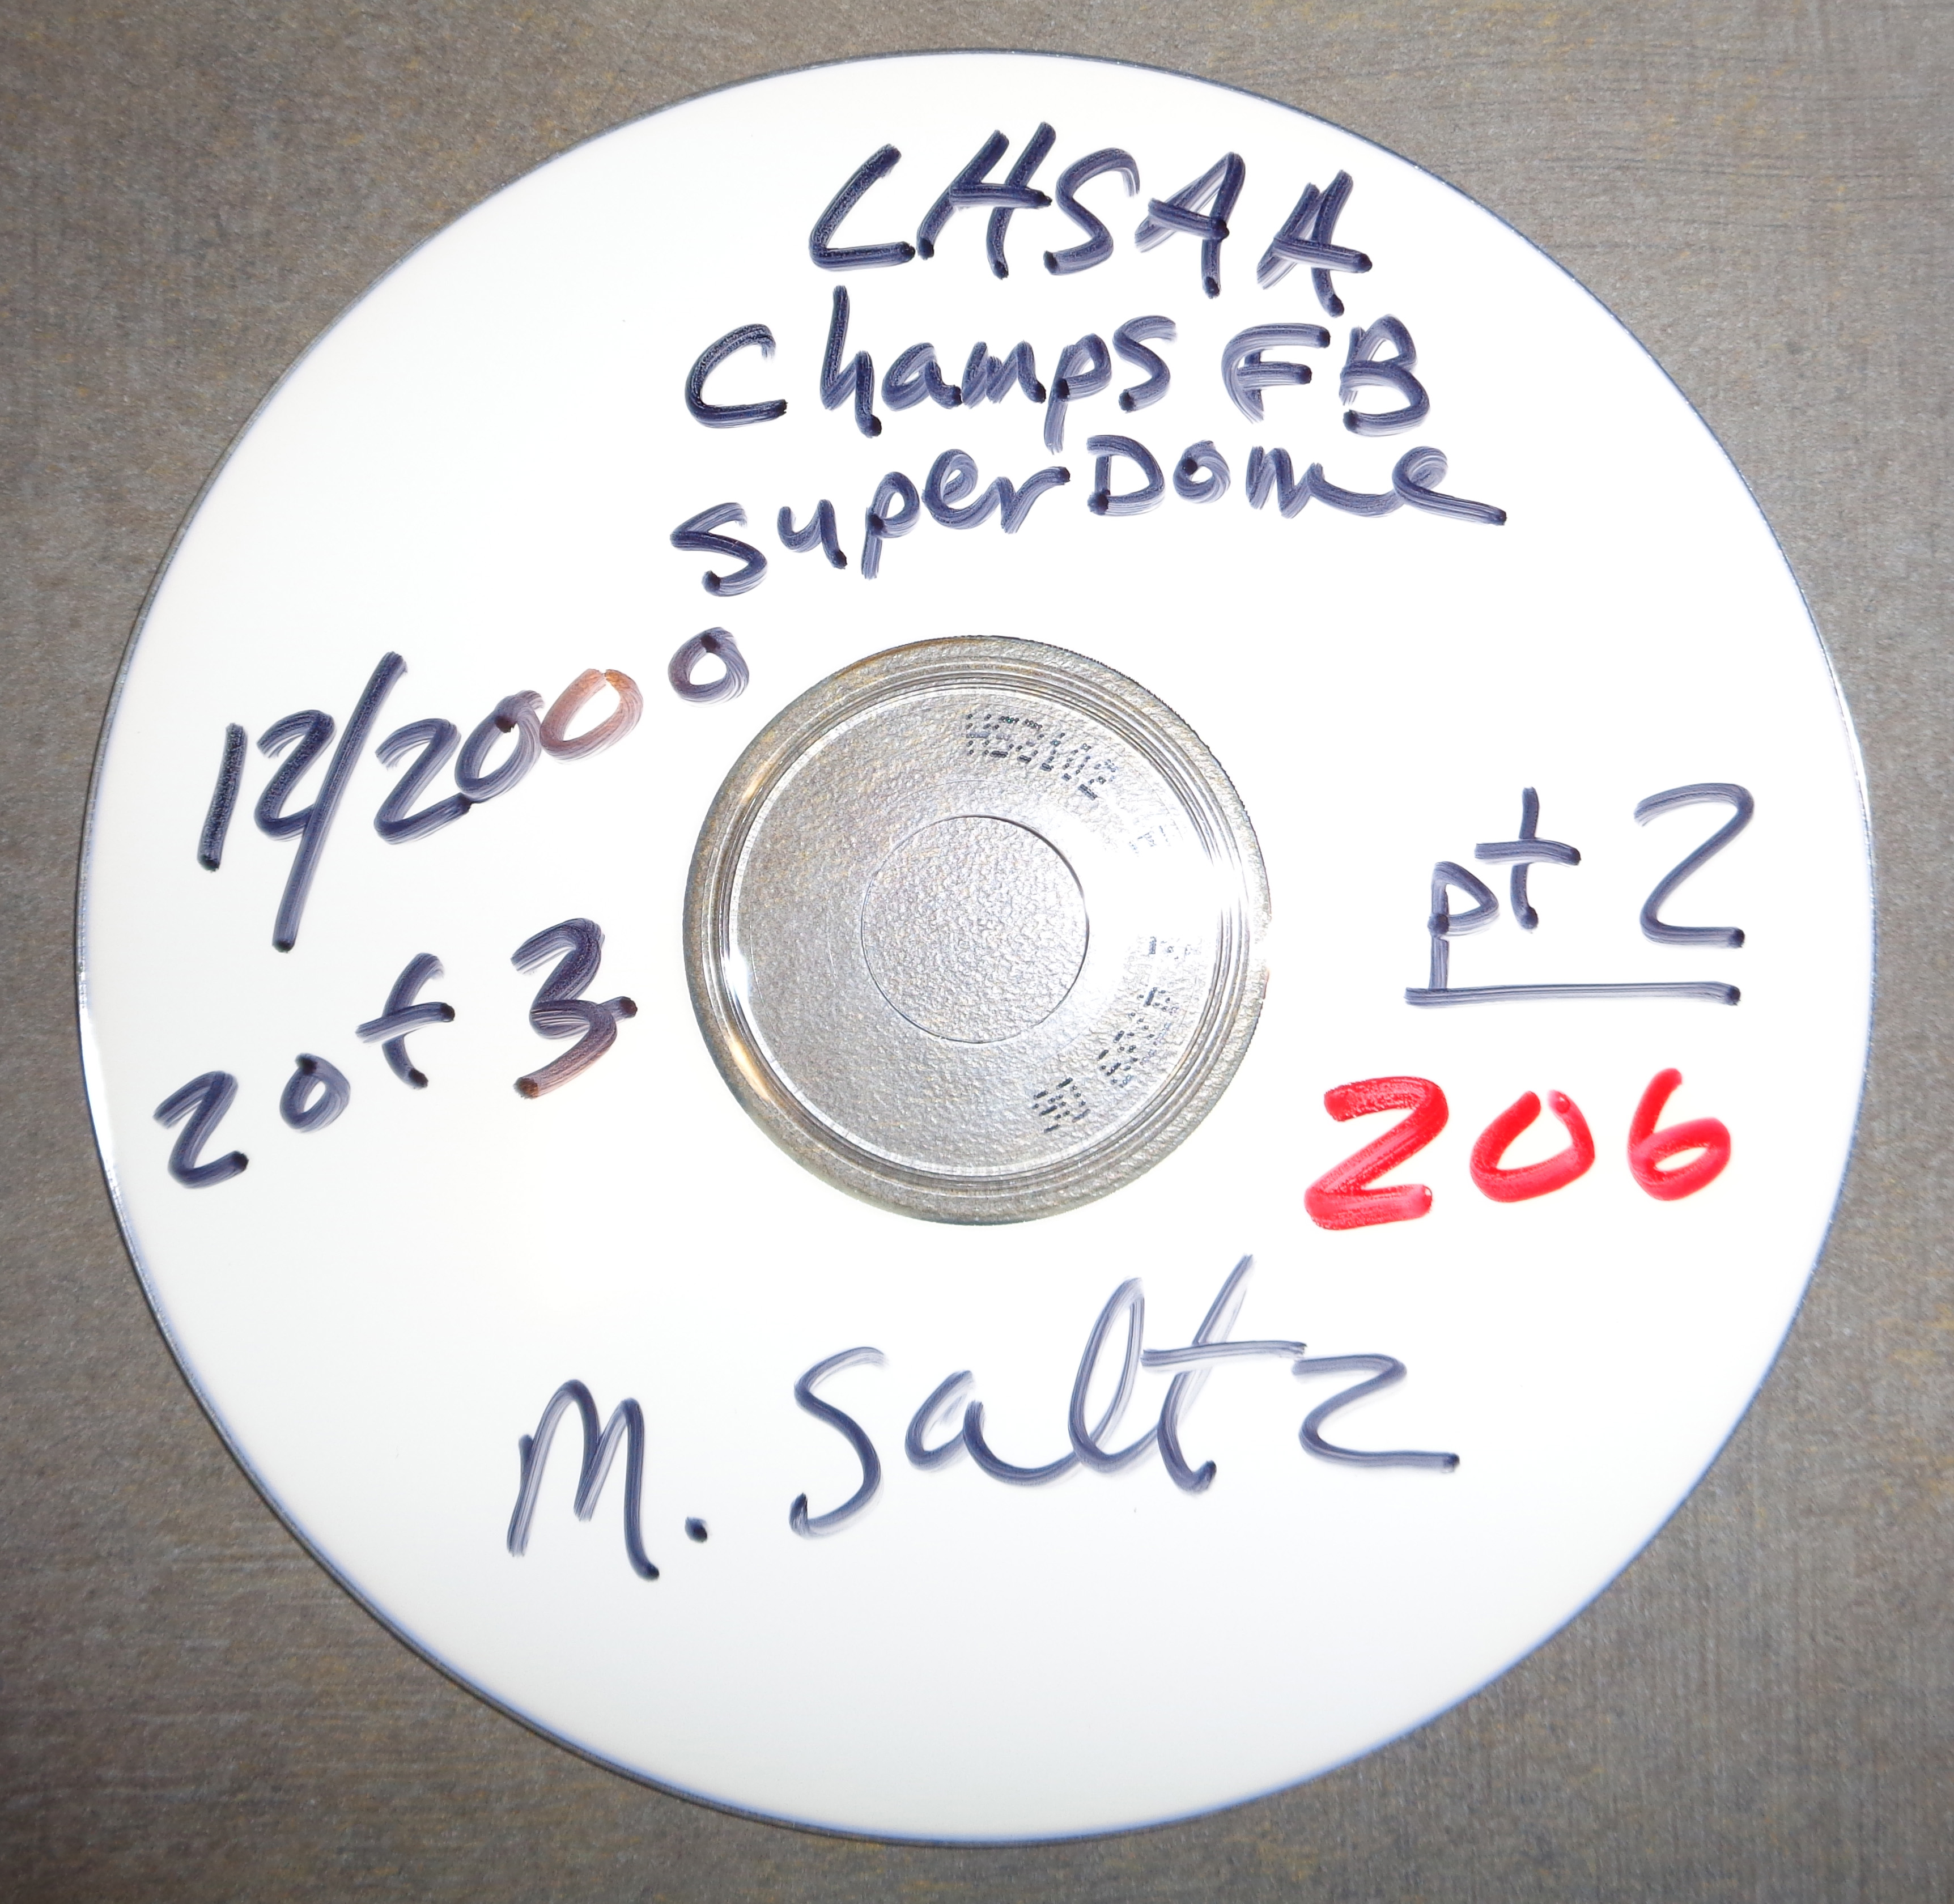 LHSAA
Champs FB
superDome
12/2000
2 of 3
pt 2
206
M. Saltz